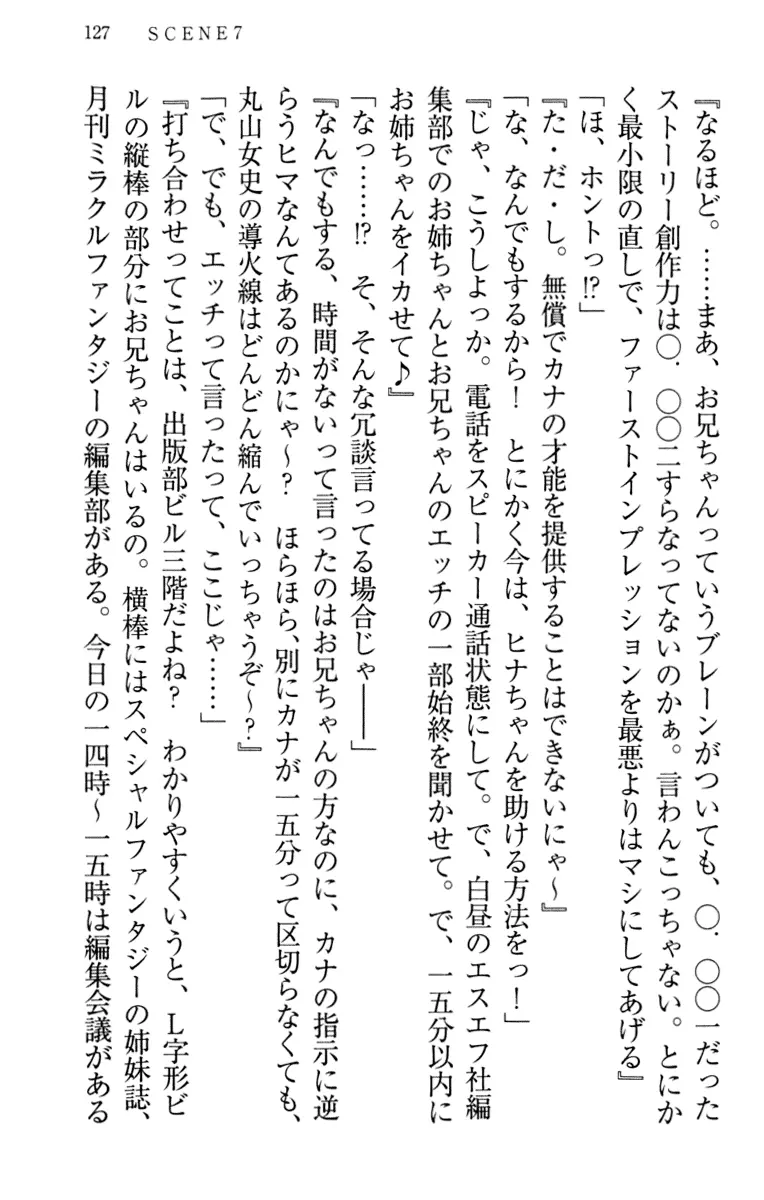 127 SCENE7
『なるほど。……まあ、お兄ちゃんっていうブレーンがついても、〇.〇〇一だった
ストーリー創作力は〇.〇〇二すらなってないのかぁ。言わんこっちゃない。とにか
く最小限の直しで、ファーストインプレッションを最悪よりはマシにしてあげる』
「ほ、ホントっ!?」
『た・だ・し。無償でカナの才能を提供することはできないにゃ～』
「な、なんでもするから！　とにかく今は、ヒナちゃんを助ける方法をっ！」
『じゃ、こうしよっか。電話をスピーカー通話状態にして。で、白昼のエスエフ社編
集部でのお姉ちゃんとお兄ちゃんのエッチの一部始終を聞かせて。で、一五分以内に
お姉ちゃんをイカせて♪』
「なっ……!?　そ、そんな冗談言ってる場合じゃ――」
『なんでもする、時間がないって言ったのはお兄ちゃんの方なのに、カナの指示に逆
らうヒマなんてあるのかにゃ～？　ほらほら、別にカナが一五分って区切らなくても、
丸山女史の導火線はどんどん縮んでいっちゃうぞ～？』
「で、でも、エッチって言ったって、ここじゃ……」
『打ち合わせってことは、出版部ビル三階だよね？　わかりやすくいうと、Ｌ字形ビ
ルの縦棒の部分にお兄ちゃんはいるの。横棒にはスペシャルファンタジーの姉妹誌、
月刊ミラクルファンタジーの編集部がある。今日の一四時～一五時は編集会議がある